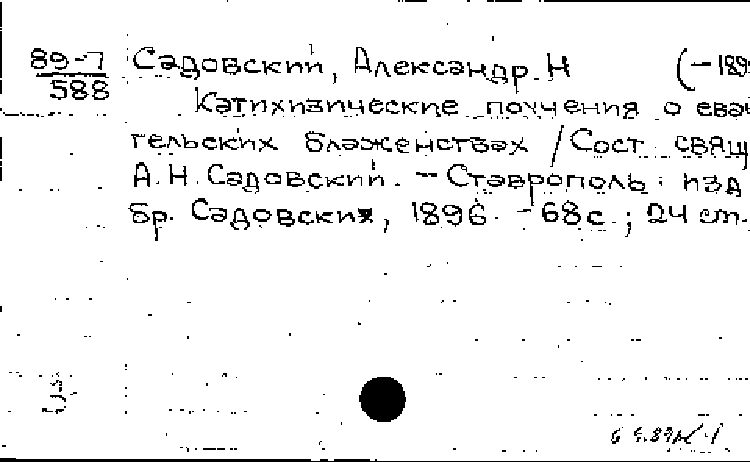 89-7 Садовский, Александр. Н (-189
588
Катихизические поучения о еван
гельских блаженствах / Сост. свящ
А. Н. Садовский. - Ставрополь: изд
бр. Садовских, 1896. - 68с.; 24 cm.